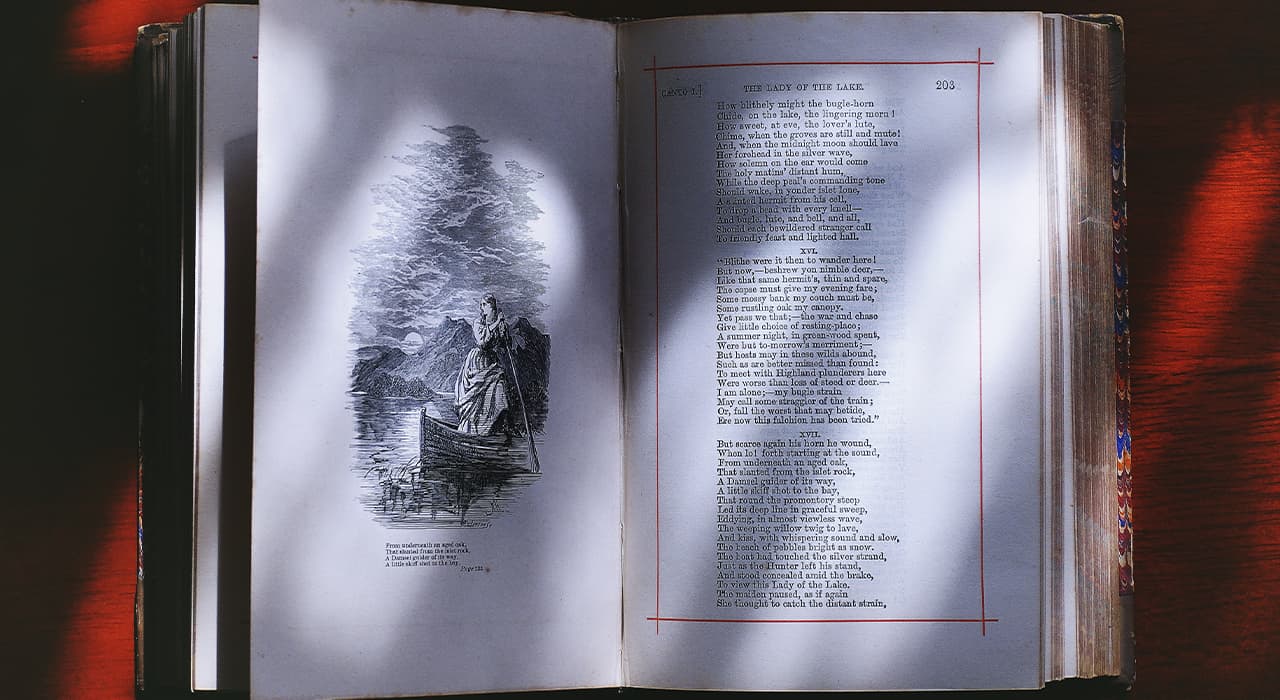 From underneath an aged oak,
That slanted from the islet rock,
A Damsel guider of its way,
A little skiff shot to the bay.
Page
CANTO I.]
THE LADY OF THE LAKE.
203
How blithely might the bugle-horn
Chide, on the lake, the lingering morn!
How sweet, at eve, the lover's lute,
Chime, when the groves are still and mute!
And, when the midnight moon should lave
Her forehead in the silver wave,
How solemn on the ear would come
The holy matins' distant hum,
While the deep peal's commanding tone
Should wake, in yonder islet lone,
A sainted hermit from his cell,
To drop a bead with every knell—
And bugle, lute, and bell, and all,
Should each bewildered stranger call
To friendly feast and lighted hall.
XVI.
"Blithe were it then to wander here!
But now,—beshrew yon nimble deer,—
Like that same hermit's, thin and spare,
The copse must give my evening fare;
Some mossy bank my couch must be,
Some rustling oak my canopy.
Yet pass we that;—the war and chase
Give little choice of resting-place;
A summer night, in green-wood spent,
Were but to-morrow's merriment;—
But hosts may in these wilds abound,
Such as are better missed than found:
To meet with Highland plunderers here
Were worse than loss of steed or deer.—
I am alone;—my bugle strain
May call some straggler of the train;
Or, fall the worst that may betide,
Ere now this falchion has been tried."
XVII.
But scarce again his horn he wound,
When lo! forth starting at the sound,
From underneath an aged oak,
That slanted from the islet rock,
A Damsel guider of its way,
A little skiff shot to the bay,
That round the promontory steep
Led its deep line in graceful sweep,
Eddying, in almost viewless wave,
The weeping willow twig to lave,
And kiss, with whispering sound and slow,
The beach of pebbles bright as snow.
The boat had touched the silver strand,
Just as the Hunter left his stand,
And stood concealed amid the brake,
To view this Lady of the Lake.
The maiden paused, as if again
She thought to catch the distant strain,